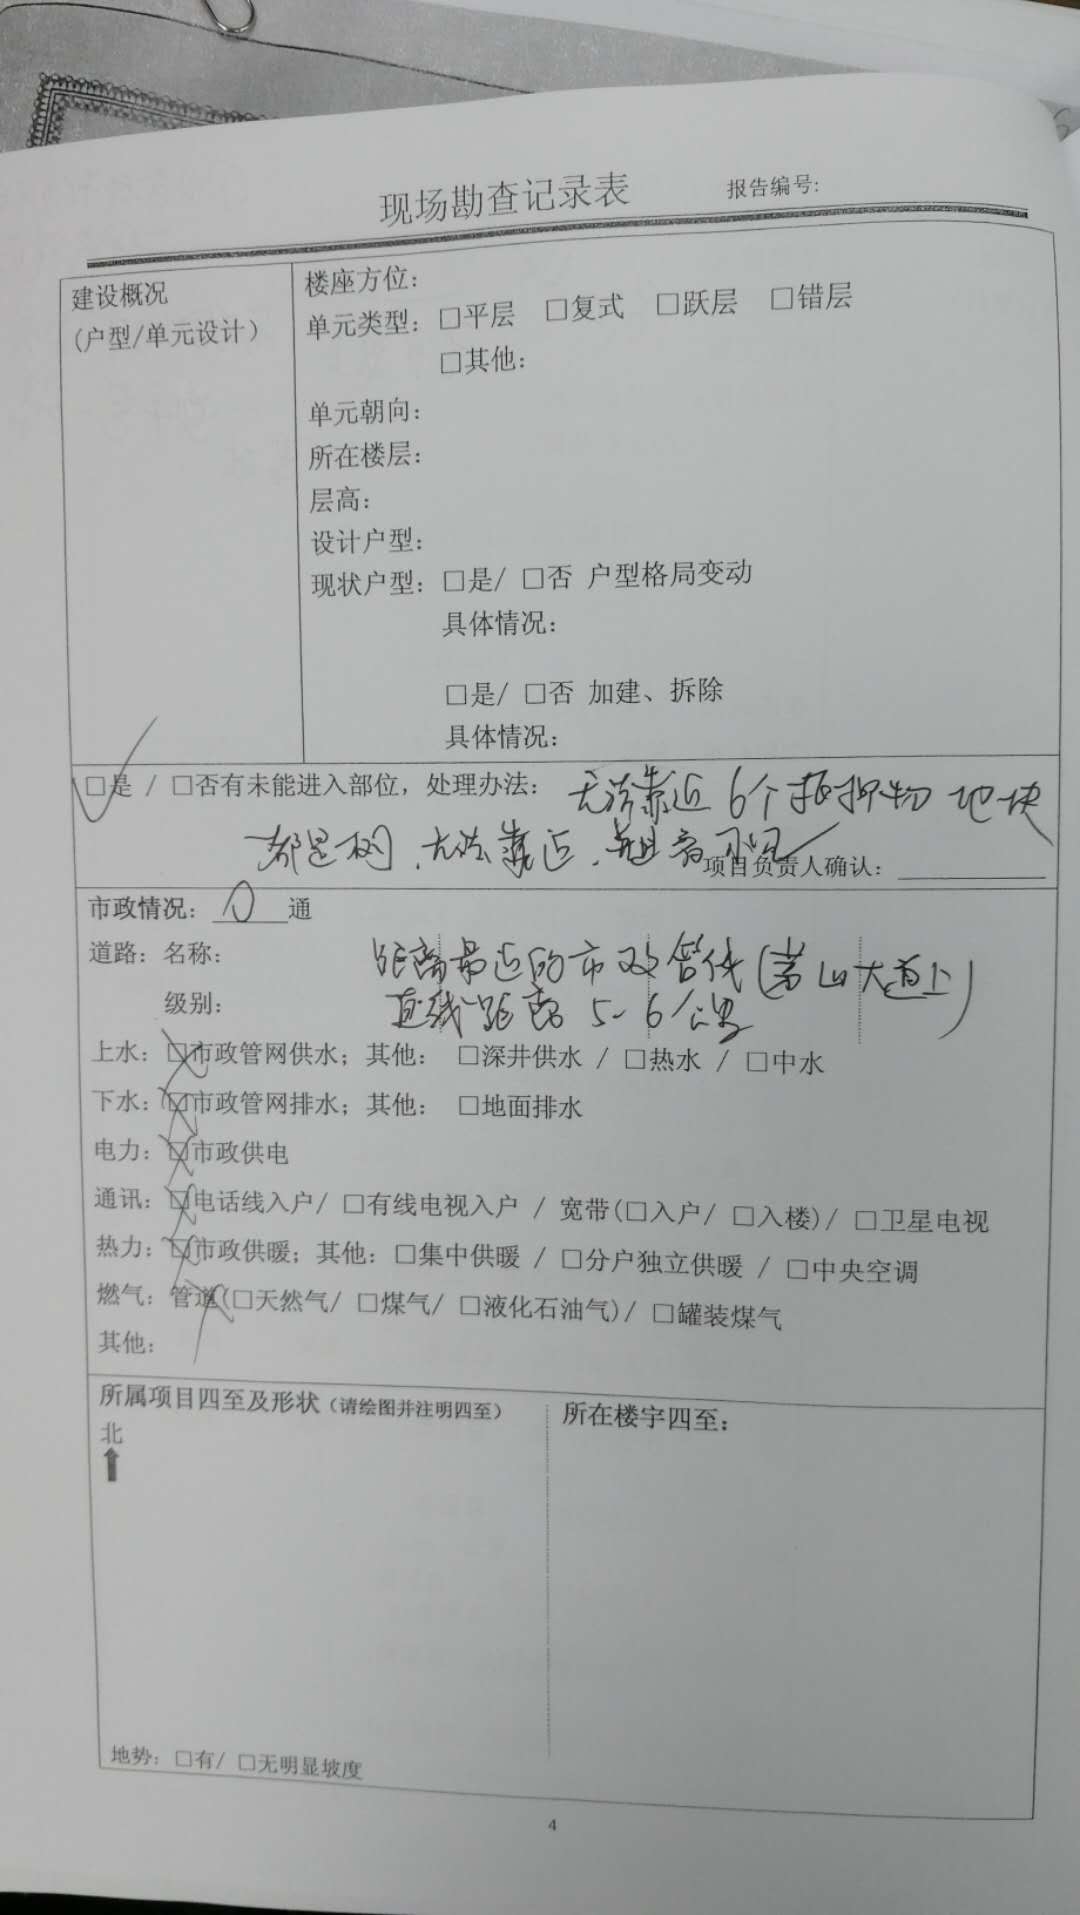 现场勘查记录表 报告编号:
建设概况
(户型/单元设计)
楼座方位:
单元类型: □平层 □复式 □跃层 □错层
□其他:
单元朝向:
所在楼层:
层高:
设计户型:
现状户型: □是/ □否 户型格局变动
具体情况:
□是/ □否 加建、拆除
具体情况:
□是 / □否有未能进入部位，处理办法: 无法靠近 6个抵押物 地块
都是树、无法靠近、
项目负责人确认:
市政情况: 0 通
道路: 名称: 距离最近的市政管线(茅山大道上)
级别: 直线距离 5-6公里
上水: □市政管网供水; 其他: □深井供水 / □热水 / □中水
下水: □市政管网排水; 其他: □地面排水
电力: □市政供电
通讯: □电话线入户/ □有线电视入户 / 宽带(□入户/ □入楼)/ □卫星电视
热力: □市政供暖; 其他: □集中供暖 / □分户独立供暖 / □中央空调
燃气: 管道(□天然气/ □煤气/ □液化石油气)/ □罐装煤气
其他:
所属项目四至及形状 (请绘图并注明四至)
北
所在楼宇四至:
地势: □有/ □无明显坡度
4